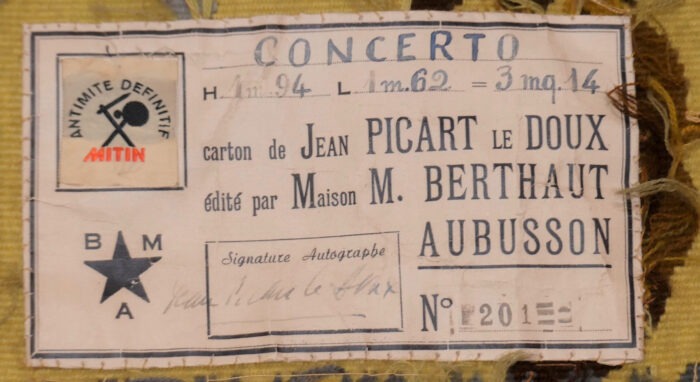 CONCERTO
ANTIMITE DEFINITIF
MITIN
H 1m.94 L 1m.62 = 3mq.14
carton de JEAN PICART LE DOUX
édité par Maison M. BERTHAUT
AUBUSSON
B M
A
Signature Autographe
Jean Picart le Doux
N° 201